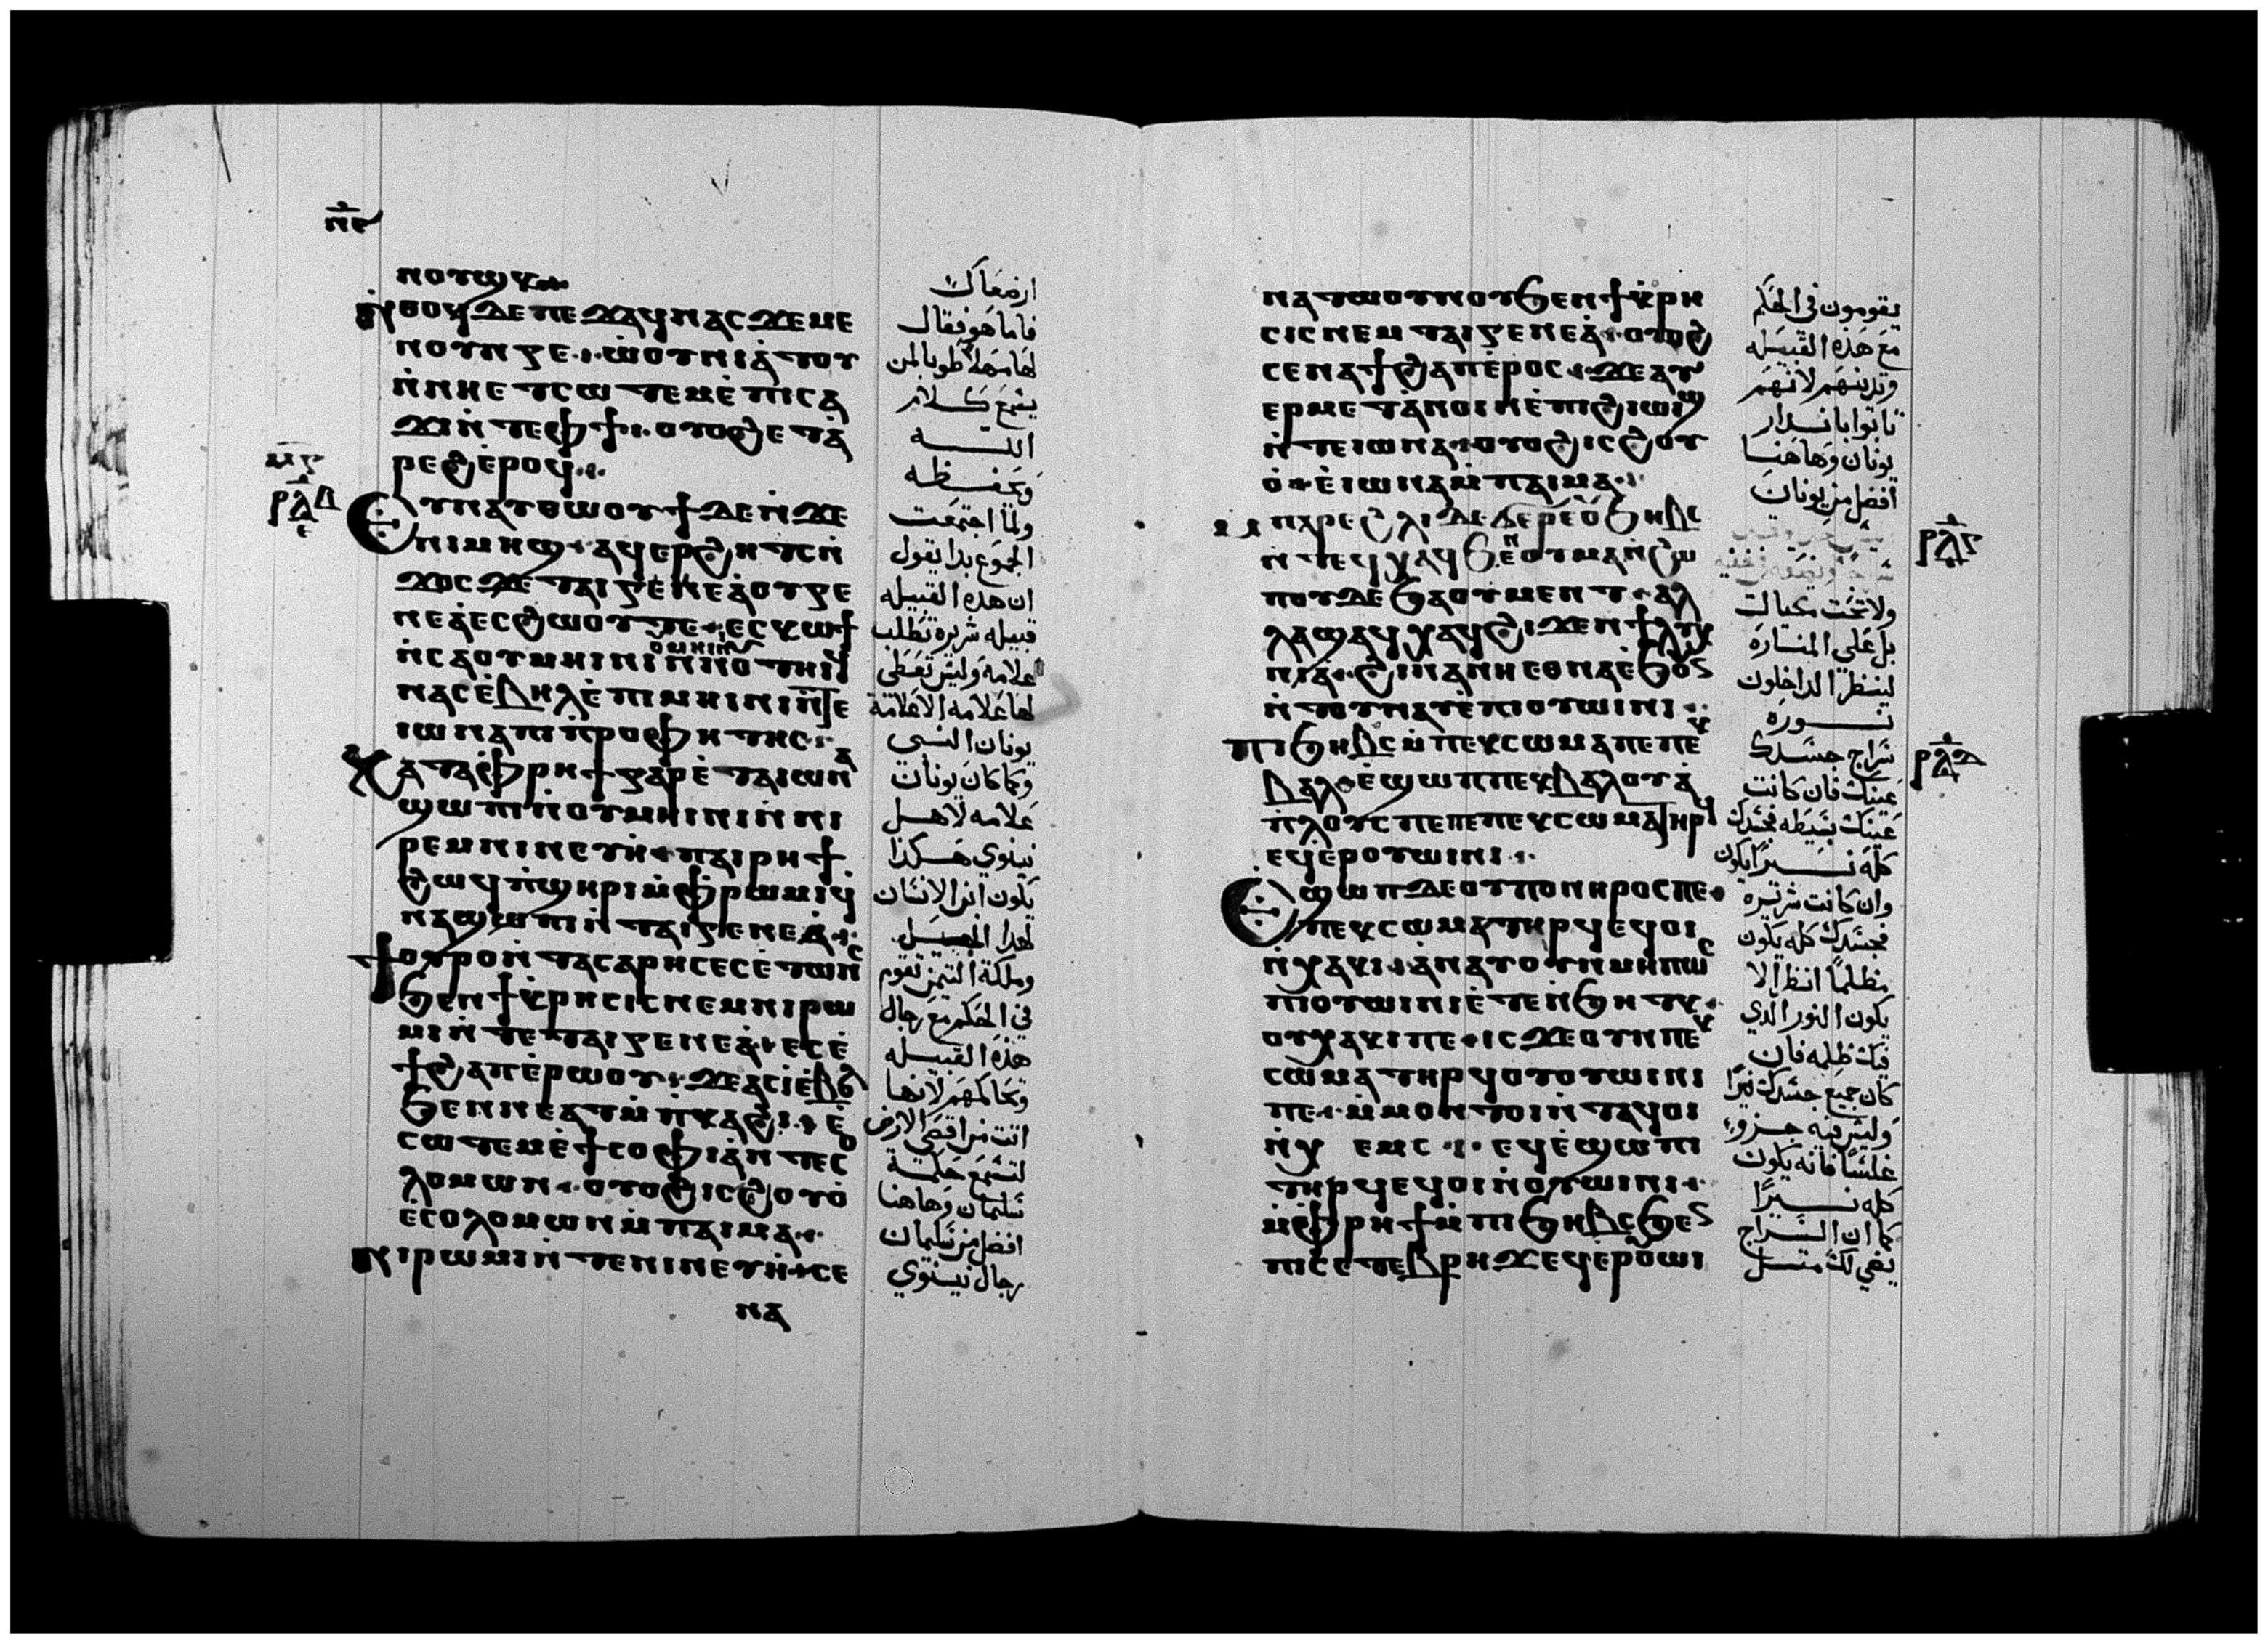 ⲛ̅ⲉ̅
ⲛⲟⲩϣⲕ
ⲛ̀ⲑⲟϥ ⲇⲉ ⲡⲉϫⲁϥ ⲛⲁⲥ ϫⲉ ⲙⲉ
ⲛⲟⲩⲛⲅⲉ ⲱ̀ⲟⲩⲛⲓⲁ̀ⲧⲟⲩ
ⲛ̀ⲛⲏ ⲉⲧⲥⲱⲧⲉⲙ ⲉ̀ⲡⲓⲥⲁ
ϫⲓ ⲛ̀ⲧⲉ ⲫϯ ⲟⲩⲟϩ ⲉⲧⲁ̀
ⲣⲉϩ ⲉ̀ⲣⲟϥ
ⲣ̅ⲗ̅ⲇ̅
Ⲉⲩⲛⲁⲩⲑⲱⲟⲩϯ ⲇⲉ ⲛ̀ϫⲉ
ⲛⲓⲙⲏϣ ⲁϥⲉⲣϩⲏⲧⲥ ⲛ̀
ϫⲟⲥ ϫⲉ ⲧⲁⲓⲅⲉⲛⲉⲁ̀ ⲟⲩⲅⲉ
ⲛⲉⲁ̀ ⲉⲥϩⲱⲟⲩ ⲧⲉ ⲉⲥⲕⲱϯ
ⲛ̀ⲥⲁ ⲟⲩⲙⲏⲓⲛⲓ
ⲛⲁⲥ ⲉ̀ⲃⲏⲗ ⲉ̀ⲡⲓⲙⲏⲓⲛⲓ ⲛ̀ⲧⲉ
ⲓⲱⲛⲁ ⲡⲓⲡ̀ⲣⲟⲫⲏⲧⲏⲥ
Ⲕⲁⲧⲁ ⲫ̀ⲣⲏϯ ⲅⲁⲣ ⲉ̀ⲧⲁ ⲓⲱⲛⲁ
ϣⲱⲡⲓ ⲛ̀ⲟⲩⲙⲏⲓⲛⲓ ⲛ̀ⲛⲓ
ⲣⲉⲙⲛⲓⲛⲉⲩⲏ̀ ⲡⲁⲓⲣⲏϯ
ϩⲱϥ ⲡ̀ϣⲏⲣⲓ ⲙ̀ⲫ̀ⲣⲱⲙⲓ ϥ̀
ⲛⲁϣⲱⲡⲓ ⲛ̀ⲧⲁⲓⲅⲉⲛⲉⲁ̀
Ϯⲟⲩⲣⲟ ⲛ̀ⲧⲉ ⲥⲁⲣⲏⲥ ⲉⲥⲉ̀ⲧⲱⲛⲥ
ϧⲉⲛ ϯⲕⲣⲏⲥⲓⲥ ⲛⲉⲙ ⲛⲓⲣⲱ
ⲙⲓ ⲛ̀ⲧⲉ ⲧⲁⲓⲅⲉⲛⲉⲁ̀ ⲉⲥⲉ̀
ϯϩⲁⲡ ⲉ̀ⲣⲱⲟⲩ ϫⲉ ⲁⲥⲓ̀ ⲉ̀ⲃⲟⲗ
ϧⲉⲛ ⲛⲉⲁⲩ ⲙ̀ⲡ̀ⲕⲁϩⲓ ⲉ̀
ⲥⲱⲧⲉⲙ ⲉ̀ϯⲥⲟⲫⲓⲁ ⲛ̀ⲧⲉ ⲥⲟ
ⲗⲟⲙⲱⲛ ⲟⲩⲟϩ ⲓⲥ ϩⲟⲩⲟ̀
ⲉ̀ⲥⲟⲗⲟⲙⲱⲛ ⲙ̀ⲡⲁⲓⲙⲁ
Ⲛⲓⲣⲱⲙⲓ ⲛ̀ⲧⲉ ⲛⲓⲛⲉⲩⲏ̀ ⲥⲉ
ⲛⲁ
ارضعاك
فاما هو فقال
لها مهلا طوبا لمن
يسمع كلام
الله
ويحفظه
ولما اجتمعت
الجموع بدا يقول
ان هذه القبيله
قبيله شريره تطلب
علامه وليس تعطى
لها علامه الا علامة
يونان النبى
وكما كان يونان
علامه لاهل
نينوي هكذا
يكون ابن الانسان
لهذا الجيل
وملكة التيمن تقوم
في الحكم مع رجال
هذه القبيله
وتحاكمهم لانها
اتت من اقصى الارض
لتسمع حكمة
سليمان وهاهنا
افضل من سليمان
رجال نينوي
ⲛⲁⲧⲱⲟⲩⲛⲟⲩ ϧⲉⲛ ϯⲕⲣⲏ
ⲥⲓⲥ ⲛⲉⲙ ⲧⲁⲓⲅⲉⲛⲉⲁ̀ ⲟⲩⲟϩ
ⲥⲉⲛⲁϯϩⲁⲡ ⲉ̀ⲣⲟⲥ ϫⲉ ⲁⲩ
ⲉⲣⲙⲉⲧⲁⲛⲟⲓⲛ ⲉ̀ⲡⲓϩⲓⲱⲓϣ
ⲛ̀ⲧⲉ ⲓⲱⲛⲁ ⲟⲩⲟϩ ⲓⲥ ϩⲟⲩ
ⲟ̀ ⲉ̀ⲓⲱⲛⲁ ⲙ̀ⲡⲁⲓⲙⲁ
ⲙ̀ⲡⲁⲣⲉ ϩⲗⲓ ⲇⲉ ϭⲉⲣⲉ ⲟⲩϧⲏⲃⲥ
ⲛ̀ⲧⲉϥⲭⲁϥ ϧⲉⲛ ⲟⲩⲙⲁ ⲛ̀ϩⲱ
ⲡ ⲟⲩⲇⲉ ϧⲁ ⲟⲩⲙⲉⲛⲧ ⲁⲗ
ⲗⲁ ϣⲁϥⲭⲁϥ ϩⲓϫⲉⲛ ϯⲗⲩⲭ
ⲛⲓⲁ̀ ϩⲓⲛⲁ ⲛⲏ ⲉⲑⲛⲁ ⲉ̀ϧⲟⲩⲛ
ⲛ̀ⲧⲟⲩⲛⲁⲩ ⲉ̀ⲡⲓⲟⲩⲱⲓⲛⲓ
Ⲡⲓϧⲏⲃⲥ ⲙ̀ⲡⲉⲕⲥⲱⲙⲁ ⲡⲉ ⲡⲉⲕ
ⲃⲁⲗ ⲉ̀ϣⲱⲡ ⲡⲉⲕⲃⲁⲗ ⲟⲩⲁ̀
ⲡⲗⲟⲩⲥ ⲡⲉ ⲡⲉⲕⲥⲱⲙⲁ ⲧⲏⲣϥ
ⲉϥⲉ̀ⲉⲣⲟⲩⲱⲓⲛⲓ
Ⲉϣⲱⲡ ⲇⲉ ⲟⲩⲡⲟⲛⲏⲣⲟⲥ ⲡⲉ
ⲡⲉⲕⲥⲱⲙⲁ ⲧⲏⲣϥ ⲉϥⲟⲓ
ⲛ̀ⲭⲁⲕⲓ ⲁ̀ⲛⲁⲩ ⲟⲩⲛ ⲙⲏⲡⲱⲥ
ⲡⲓⲟⲩⲱⲓⲛⲓ ⲉ̀ⲧⲉⲛ̀ϧⲏⲧⲕ
ⲟⲩⲭⲁⲕⲓ ⲡⲉ ⲓⲥϫⲉ ⲟⲩⲛ ⲡⲉⲕ
ⲥⲱⲙⲁ ⲧⲏⲣϥ ⲟⲩⲟⲩⲱⲓⲛⲓ
ⲡⲉ ⲙ̀ⲙⲟⲛ ⲧⲟⲓ ⲛ̀ⲧⲁϥ ⲟⲓ
ⲛ̀ⲭ ⲉⲙⲥ ⲉϥⲉ̀ϣⲱⲡⲓ
ⲧⲏⲣϥ ⲉϥⲟⲓ ⲛ̀ⲟⲩⲱⲓⲛⲓ
ⲙ̀ⲫ̀ⲣⲏϯ ⲙ̀ⲡⲓϧⲏⲃⲥ ϧⲉⲛ
ⲡⲓⲥⲉⲧⲉⲃⲣⲏϫ ⲉϥⲉⲣⲟⲩⲱⲓ
يقومون فى الحكم
مع هذه القبيله
وتدينهم لانهم
تابوا بانذار
يونان وهاهنا
افضل من يونان
ولا تحت مكيال
بل على المناره
لينظر الداخلون
نوره
سراج جسدك
عينك فان كانت
عينك بسيطه فجسدك
كله نيرا يكون
وان كانت شريره
فجسدك كله يكون
مظلما انظر الا
يكون النور الذي
فيك ظلمه فان
كان جميع جسدك نيرا
وليس فيه جزو
غلسا فانه يكون
كله نيرا
كما ان السراج
يضي لك
ⲣ̅ⲗ̅ⲋ̅